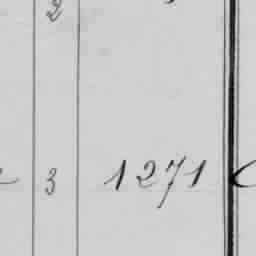 2
3 1271